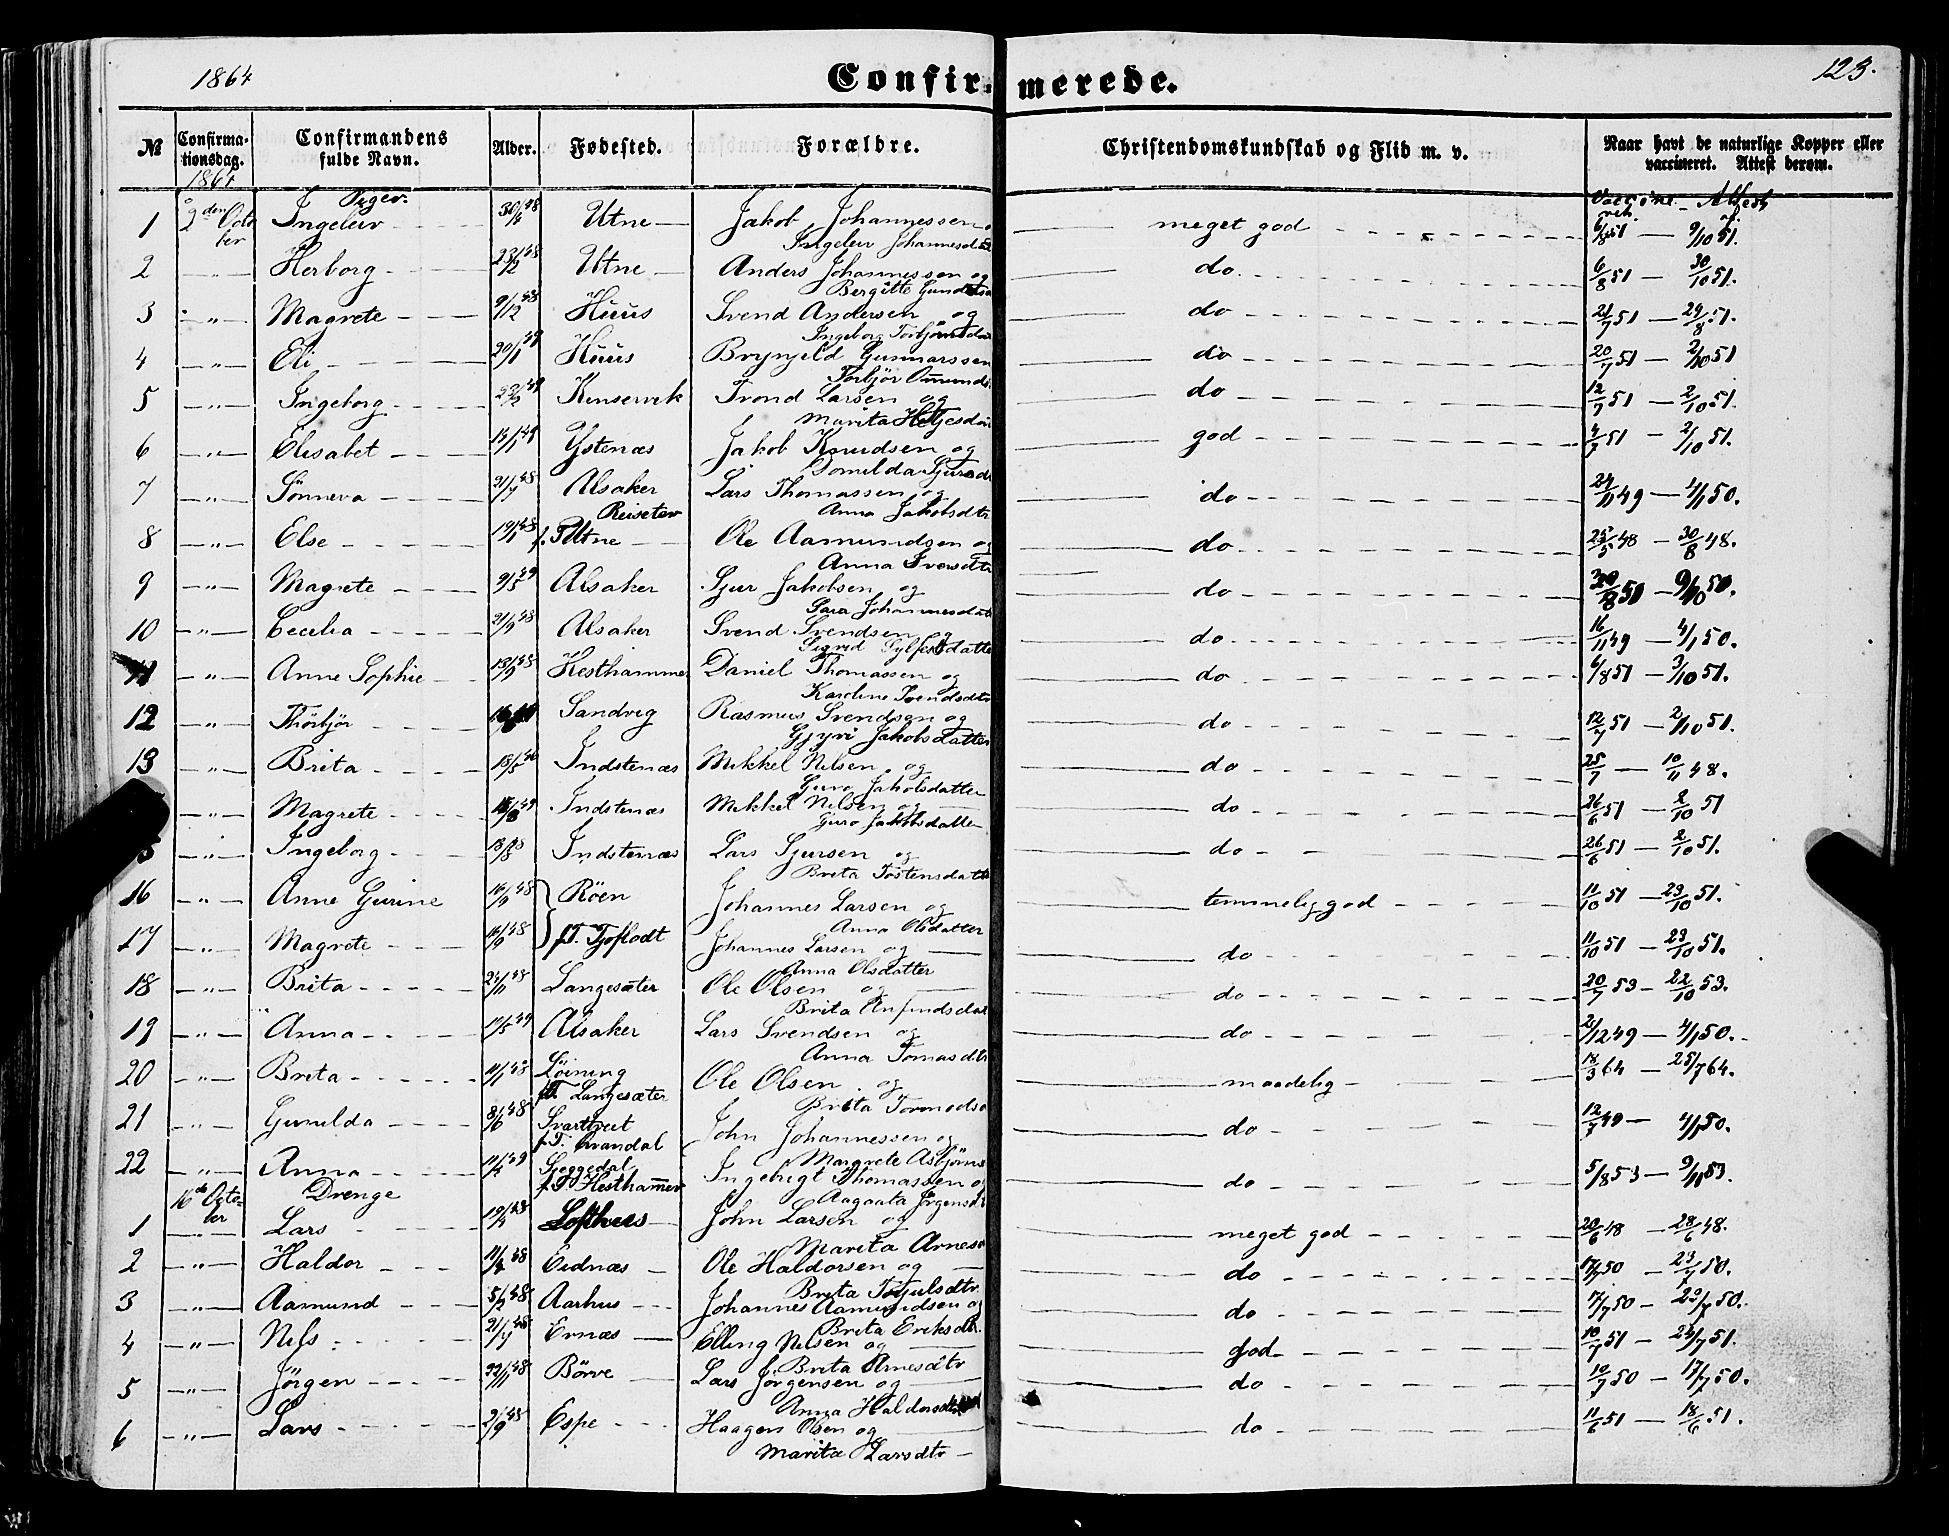 1864
Confirmerede.
123.
№ Confirmationsdag. Confirmandens fulde Navn. Alder. Fødested. Forældre. Christendomskundskab og Flid m. v. Naar havt de naturlige Kopper eller vaccineret. Attest derom.
1864
Piger. Vaccine - Attest
1 2den Octo Ingeleiv Utne Jakob Johannessen meget god 6/8 51 — 9/10 51.
ber Ingeleiv Johannesd
2 —"— Herborg Utne Anders Johannessen og do 6/8 51 — 30/10 51.
Bergitte
3 —"— Magrete 9/12 48 Huus Svend Andersen og do 21/7 51 — 29/8 51.
Ingeborg
4 —"— Eli 20/1 49 Huus Brynjeld Gunnarssen do 20/7 51 — 2/10 51
Torbjør
5 —"— Ingeborg Kinservik Trond Larsen og do 12/7 51 — 2/10 51.
Marita
6 —"— Elisabet Ystenæs Jakob Knudsen og god 4/7 51 — 2/10 51.
7 —"— Sønneva 21/7 48 Alsaker Lars Thomassen og do 24/11 49 — 4/1 50.
Reiseter Anna Jakobsdtr
8 —"— Else 19/1 48 f. T Utne Ole Aamundsen og do 25/5 48 — 30/8 48.
Anna Iversdtr
9 —"— Magrete 9/5 49 Alsaker Sjur Jakobsen og do — 9/10 50.
Sara Johannesdat
10 —"— Cecelia 21/9 48 Alsaker Svend Svendsen og do 16/11 49 — 4/1 50.
Sigrid
11 —"— Anne Sophie 13/9 48 Hesthammer Daniel Thomassen og do 6/8 51 — 3/10 51.
Karoline Svendsdtr
12 —"— Thorbjør Sandvig Rasmus Svendsen og do 12/7 51 — 2/10 51.
Gjyri Jakobsdatter
13 —"— Brita Indstenæs Mikkel Nilsen og do 25/7 — 10/11 48.
Guro Jakobsdatter
—"— Magrete Indstenæs Mikkel Nilsen og do 26/6 51 — 2/10 51
Guro Jakobsdatter
5 —"— Ingeborg Indstenæs Lars Sjursen og do 26/6 51 — 2/10 51.
Brita Tostensdatt
16 —"— Anne Gurine 16/9 48 Röen Johannes Larsen og temmelig god 11/10 51 — 23/10 51.
Anna Olsdatter
17 —"— Magrete 16/9 48 f. T. Tjoflodt Johannes Larsen og do 11/10 51 — 23/10 51.
Anna Olsdatter
18 —"— Brita Langesæter Ole Olsen og do 20/7 53 — 22/10 53.
Brita Anfindsdat
19 —"— Anna Alsaker Lars Svendsen og do 21/12 49 — 4/1 50.
Anna Tomasdtr
20 —"— Brita Löining Ole Olsen og maadelig 18/3 64 — 25/7 64.
f. T. Langesæter Brita
21 —"— Gunilda 8/6 48 Svartveit John Johannessen og do 12/7 49 — 4/1 50.
f. T. Qvandal Margrete Asbjørns
22 —"— Anna Sjeggedal Ingebrigt Thomassen og do 5/8 53 — 9/11 53.
16de Octo- Drenge f. T. Hesthammer Aagaata Jørgensdt
1 ber Lars Lofthuus John Larsen og meget god 20/6 48 — 28/6 48.
Marita Arnes
2 —"— Haldor 11/4 48 Eidnæs Ole Haldorsen og do 17/7 50 — 23/7 50.
Brita Torjulsdtr
3 —"— Aamund 5/2 48 Aarhus Johannes Aamundsen og do 17/7 50 — 29/7 50.
Brita Eriksdtr.
4 —"— Nils 21/7 48 Ernæs Elling Nilsen og god 10/7 51 — 24/7 51.
Brita Arnesdtr
5 —"— Jörgen 22/11 48 Börve Lars Jörgensen og do 10/7 50 — 17/7 50.
Anna
6 —"— Lars 2/9 48 Espe Haagen Olsen og do 11/6 51 — 18/6 51.
Marita Larsdtr